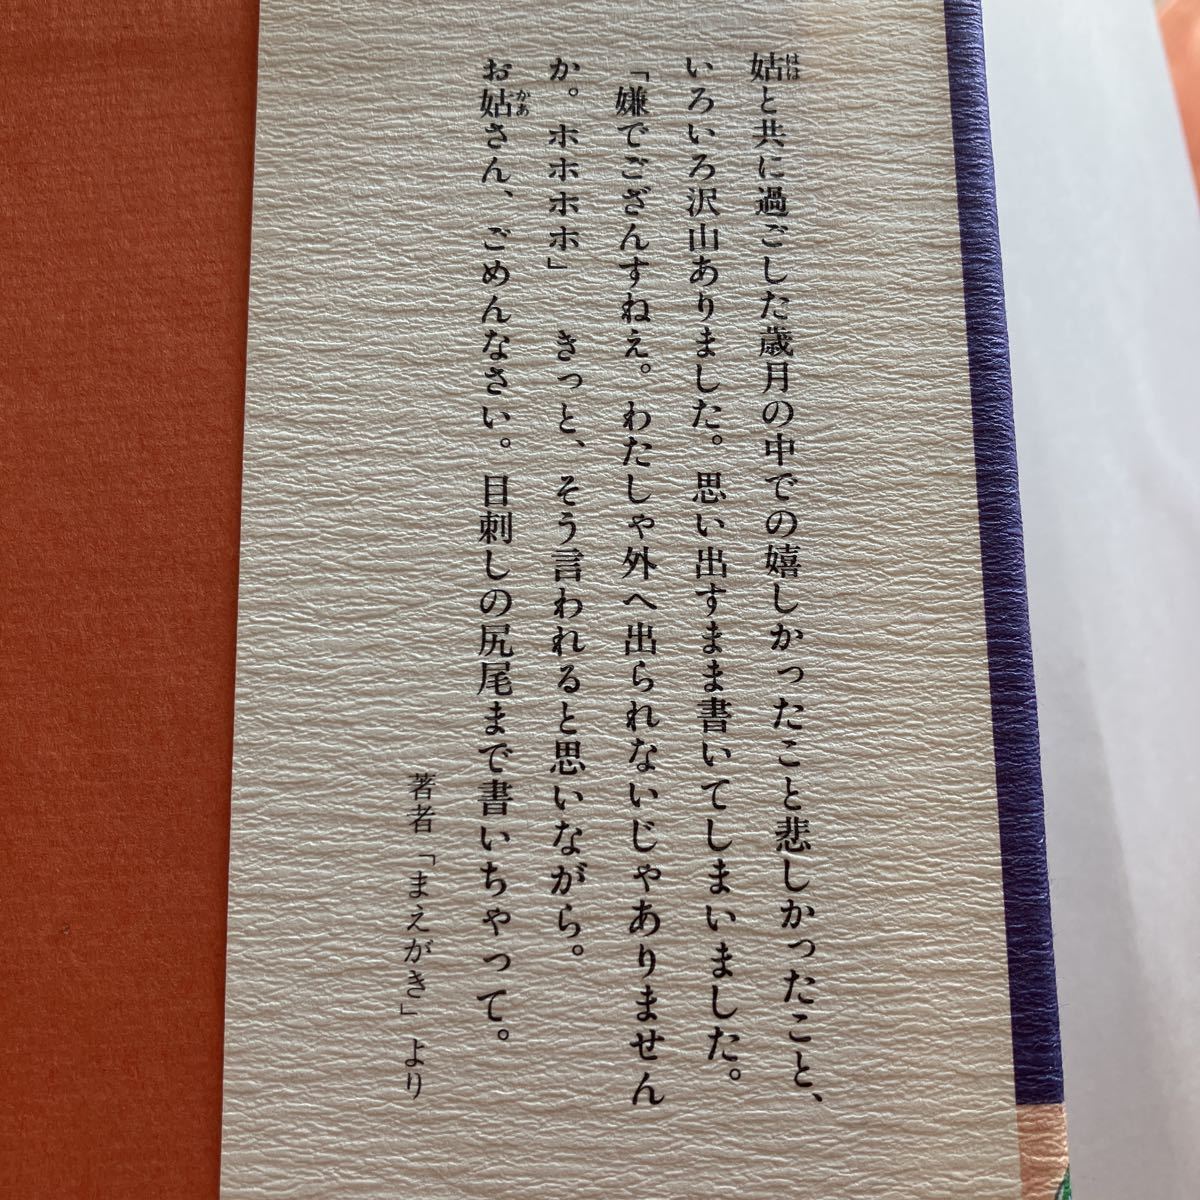 姑と共に過ごした歳月の中での嬉しかったこと悲しかったこと、
いろいろ沢山ありました。思い出すまま書いてしまいました。
「嫌でござんすねぇ。わたしゃ外へ出られないじゃありません
か。ホホホホ」　きっと、そう言われると思いながら。
お姑さん、ごめんなさい。目刺しの尻尾まで書いちゃって。
著者「まえがき」より
はは
かあ